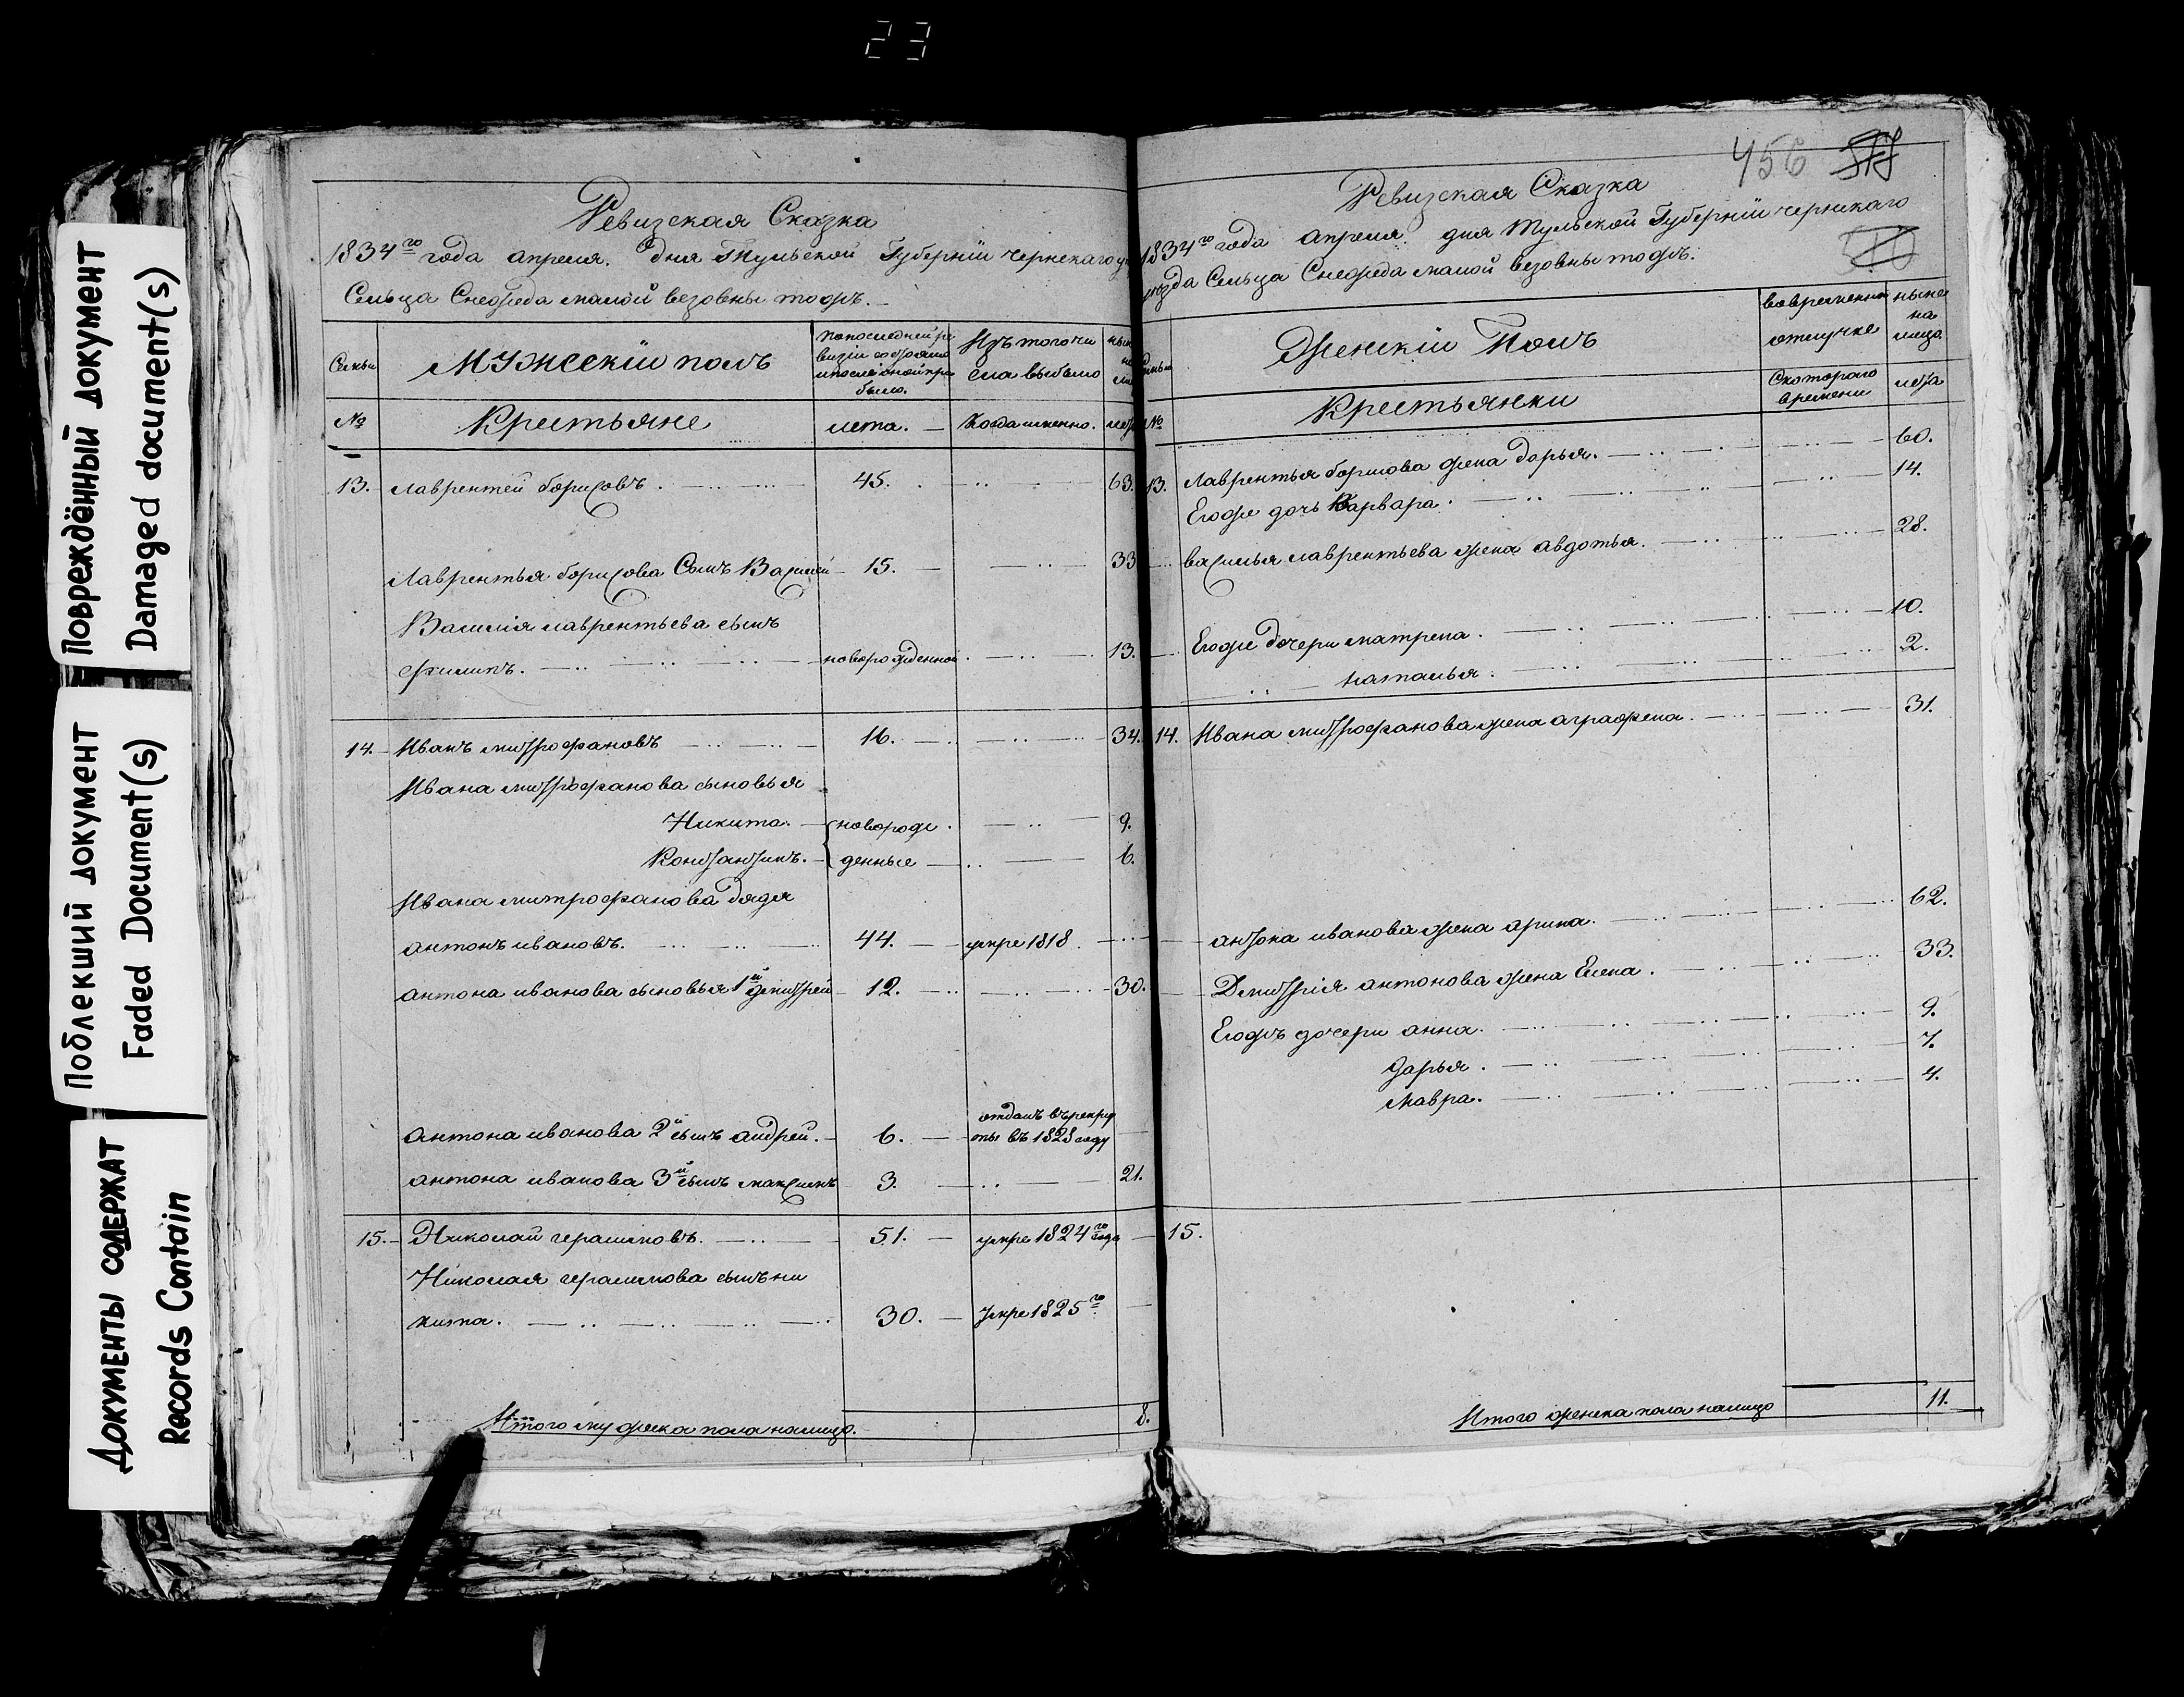 23
Повреждённый документ
Damaged document(s)
Поблекший документ
Faded Document(s)
Документы содержат
Records Contain
Ревизская Сказка
1834го года апреля. дня Тульской Губернїи чернскаго
Сельца Снефеда малой везовны тожъ.
Семьи
Мужескїй полъ
Изъ того чи
сла выбыло
было.
№
Крестьяне
лета.
Когда именно.
13. лаврентей борисовъ. 45. 63.
Лаврентья борисова Сынъ Василей 15. 33
Василия лаврентьева сынъ
филипъ. новорожденной. 13.
14. Иванъ митрофановъ 16. 34.
Ивана митрофанова сыновья
Никита. новорож 9.
Константинъ. денные 6.
Ивана митрофанова дядя
антонъ ивановъ. 44. умре 1818.
антона иванова сыновья 1й дмитрей 12. 30.
отданъ въ рекру
антона иванова 2й сынъ андрей. 6. ты въ 1828 году
антона иванова 3й сынъ максимъ 3. 21.
15. Николай герасимовъ. 51. умре 1824го года
Николая герасимова сынъ ни
кита. 30. умре 1825го
Итого мужеска пола налицо. 8.
456
Ревизская Сказка
1834го года апреля. дня Тульской Губернїи чернскаго
уезда Сельца Снефеда малой везовны тожъ.
Женскїй Полъ
во временной
отлучке
ныне
на
лицо.
№
Крестьянки
Скотораго
времени
лета
13. Лаврентья борисова жена дарья. 60.
Егоже дочь Варвара. 14.
василья лаврентьева жена авдотья. 28.
Егоже дочери матрена. 10.
наталья. 2.
14. Ивана митрофанова жена аграфена. 31.
антона иванова жена арина. 62.
Дмитрїя антонова жена Елена. 33.
Егожъ дочери анна. 9.
дарья. 7.
мавра. 4.
15.
Итого женска пола налицо 11.